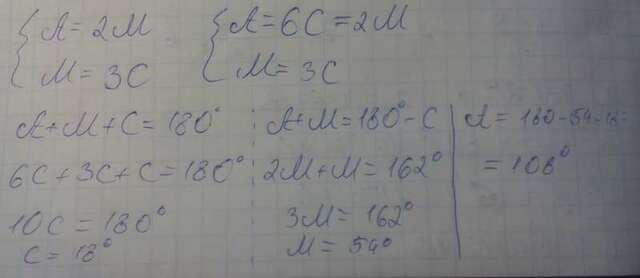 A = 2M
M = 3C
A = 6C = 2M
M = 3C
A + M + C = 180°
6C + 3C + C = 180°
10C = 180°
C = 18°
A + M = 180° - C
2M + M = 162°
3M = 162°
M = 54°
A = 180 - 54 - 18 =
= 108°